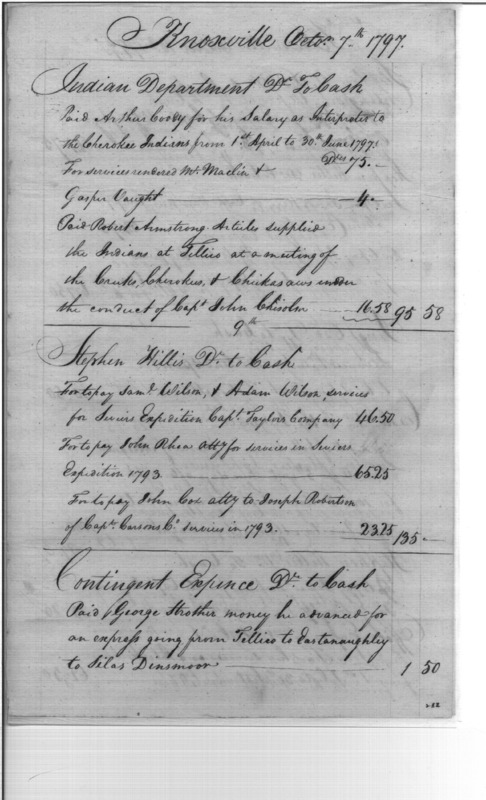 Knoxville Octor. 7th. 1797.
Indian Department Dr. To Cash
Paid Arthur Coody for his Salary as Interpreter to
the Cherokee Indians from 1st April to 30th June 1797.
Dlrs 75.—
For services rendered Mr. Maclin &
Gasper Vaught — 4.
Paid Robert Armstrong Articles supplied
the Indians at Tellico at a meeting of
the Creeks, Cherokees, & Chikasaws under
the conduct of Capt. John Chisolm — 16.58 95 58
9th
Stephen Hillis Dr. to Cash
For to pay Saml. Wilson, & Adam Wilson, services
for Seviers Expedition Capt. Taylors Company 46.50
For to pay John Rhea atty for services in Seviers
Expedition 1793 — 65.25
For to pay John Cox atty to Joseph Robertson
of Capt. Carsons Co. services in 1793. — 23.25 135 —
Contingent Expence Dr. to Cash
Paid George Strother money he advanced for
an express going from Tellico to Eastanaughley
to Silas Dinsmoor — 1 50